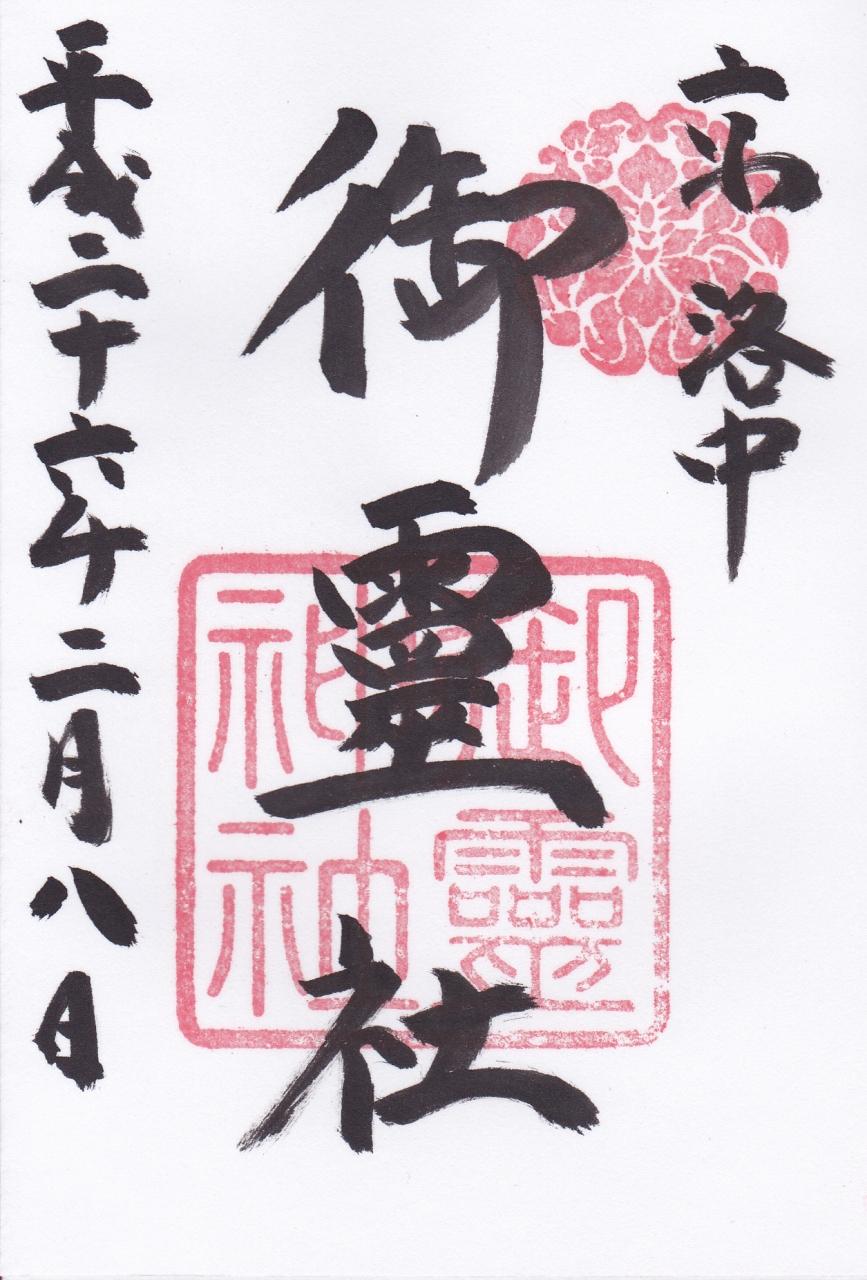 京 洛中
御靈社
御靈
神社
平成二十六年二月八日